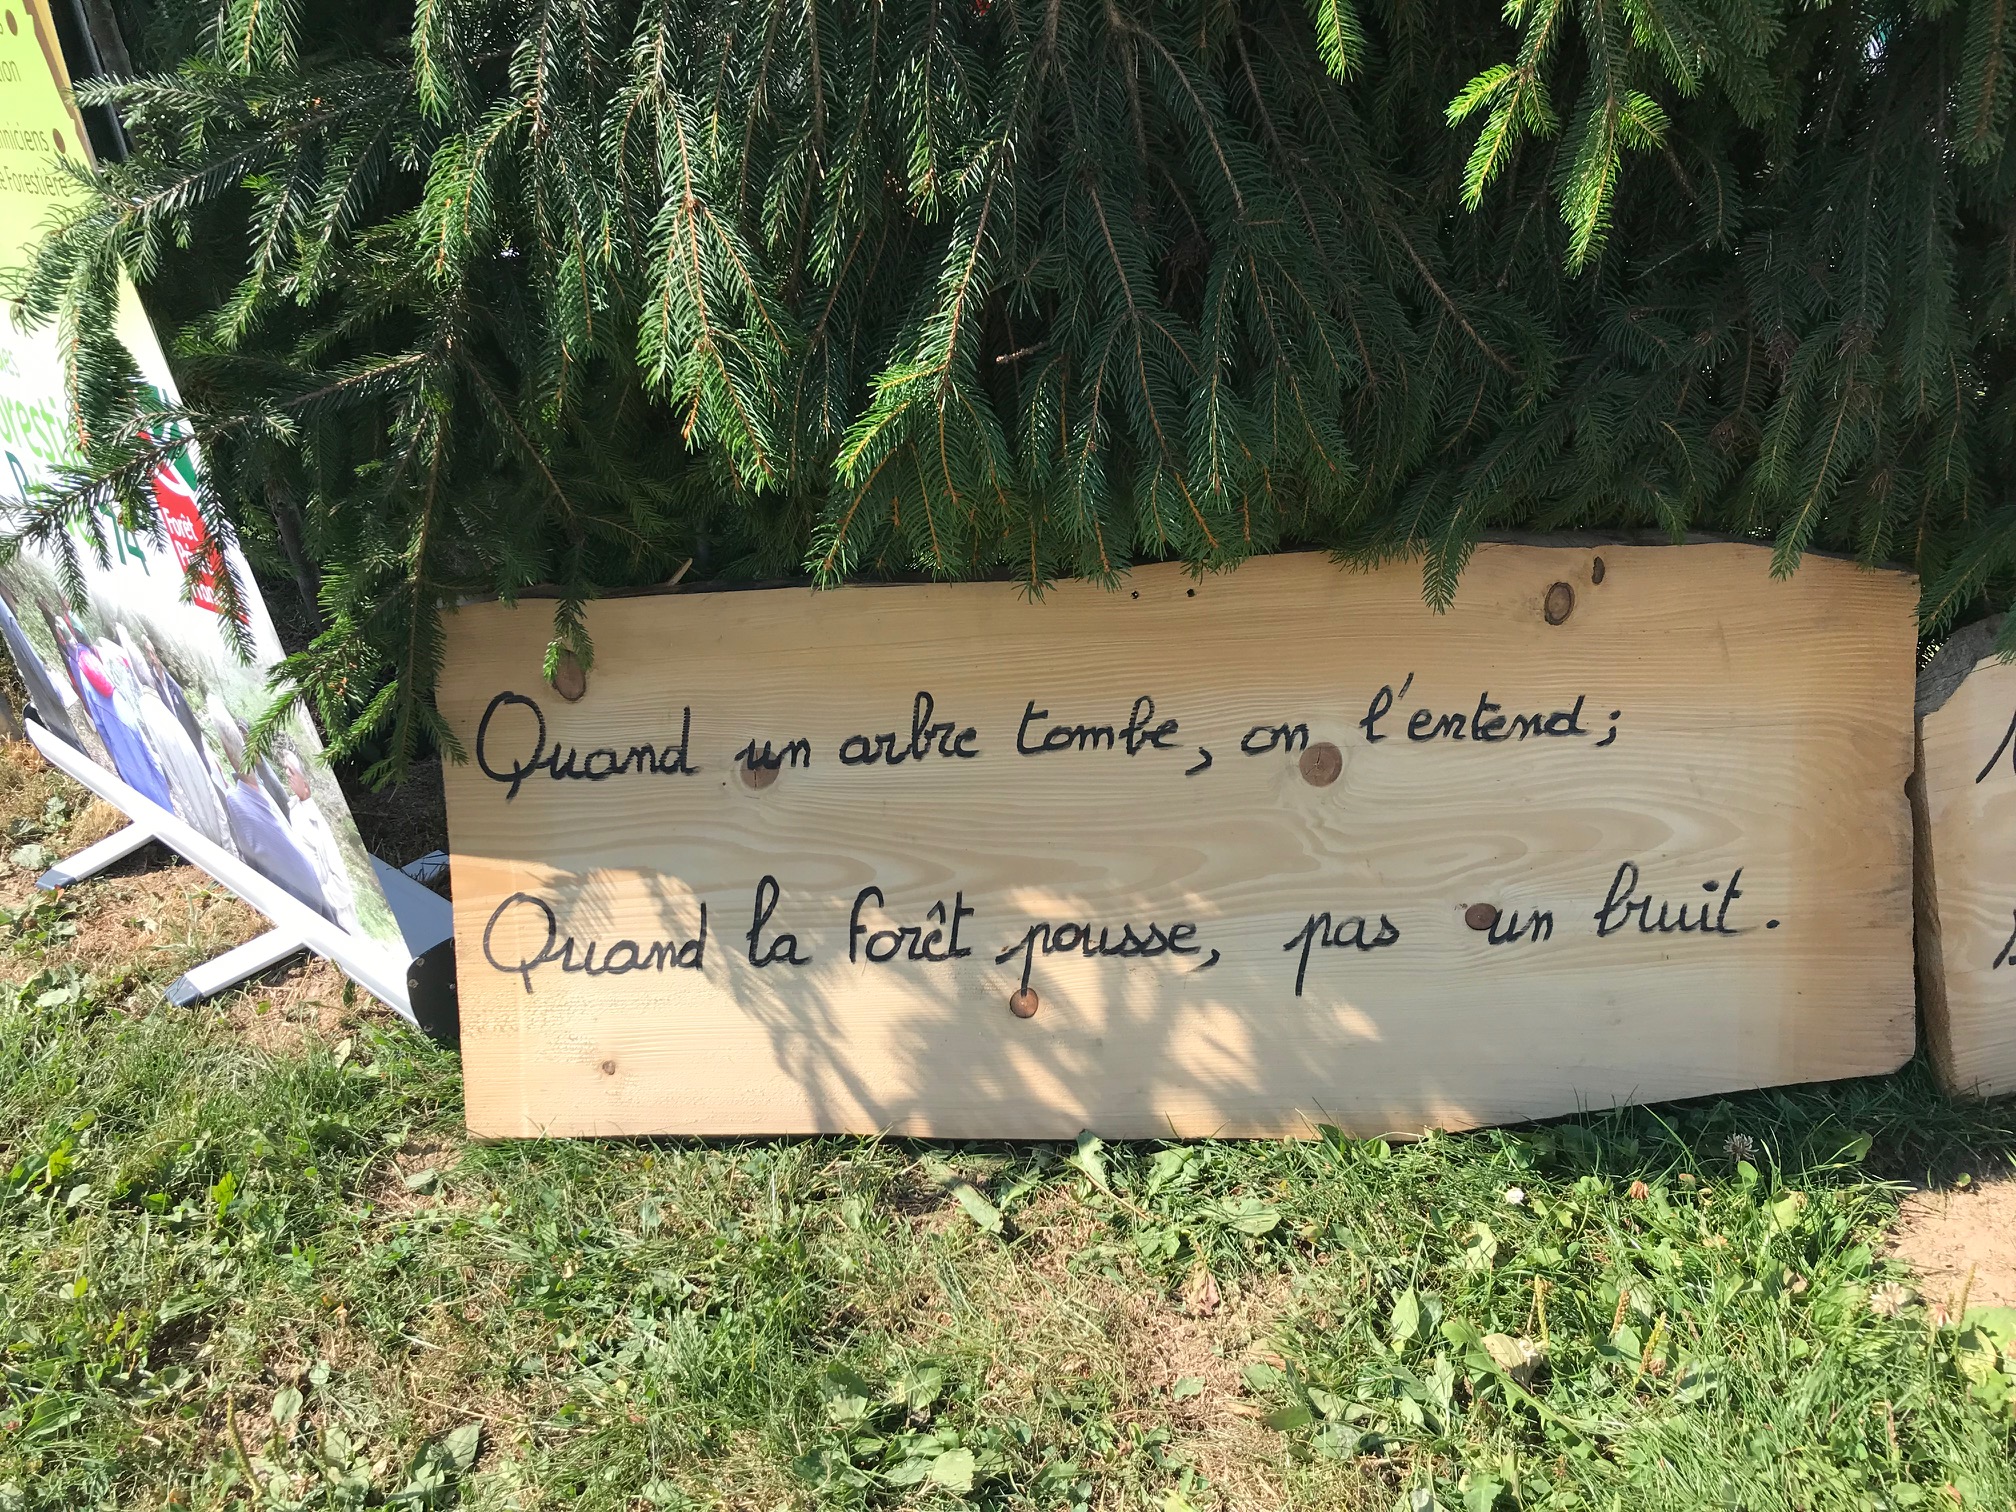 Quand un arbre tombe, on l'entend;
Quand la forêt pousse, pas un bruit.
niciens
Forestière
14
Forêt